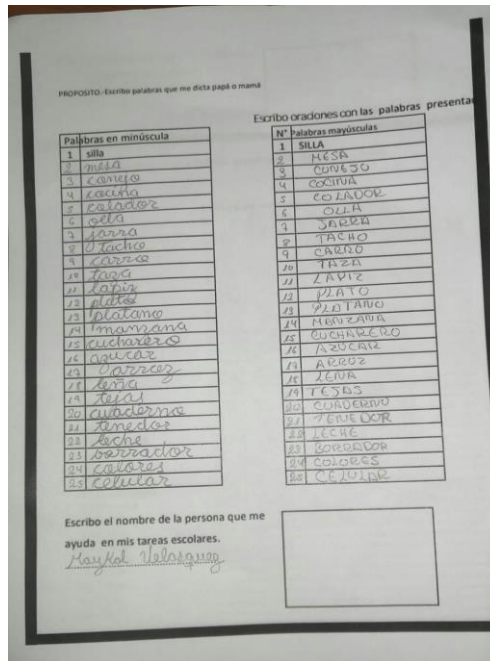 PROPOSITO.-Escribo palabras que me dicta papá o mamá
Escribo oraciones con las palabras presenta
Palabras en minúscula
1 silla
2 mesa
3 conejo
4 cocina
5 colador
6 olla
7 jarra
8 tacho
9 carro
10 taza
11 lapiz
12 plato
13 platano
14 manzana
15 cucharero
16 azucar
17 arroz
18 leña
19 tejas
20 cuaderno
21 tenedor
22 leche
23 borrador
24 colores
25 celular
N° Palabras mayúsculas
1 SILLA
2 MESA
3 CONEJO
4 COCINA
5 COLADOR
6 OLLA
7 JARRA
8 TACHO
9 CARRO
10 TAZA
11 LAPIZ
12 PLATO
13 PLATANO
14 MANZANA
15 CUCHARERO
16 AZUCAR
17 ARROZ
18 LEÑA
19 TEJAS
20 CUADERNO
21 TENEDOR
22 LECHE
23 BORRADOR
24 COLORES
25 CELULAR
Escribo el nombre de la persona que me
ayuda en mis tareas escolares.
Maykol Velasquez